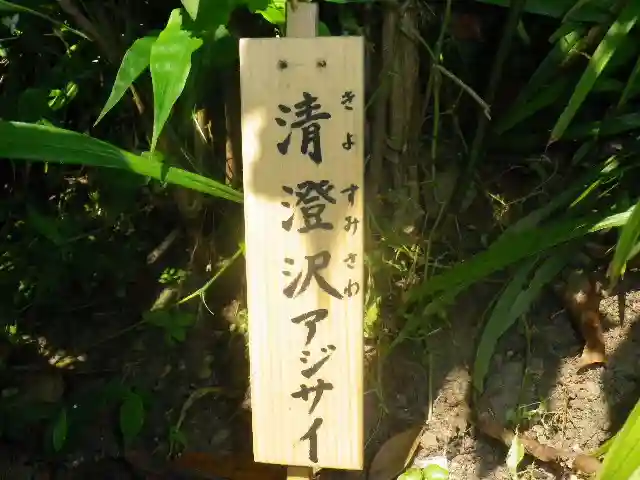 清澄沢アジサイ
きよすみさわ